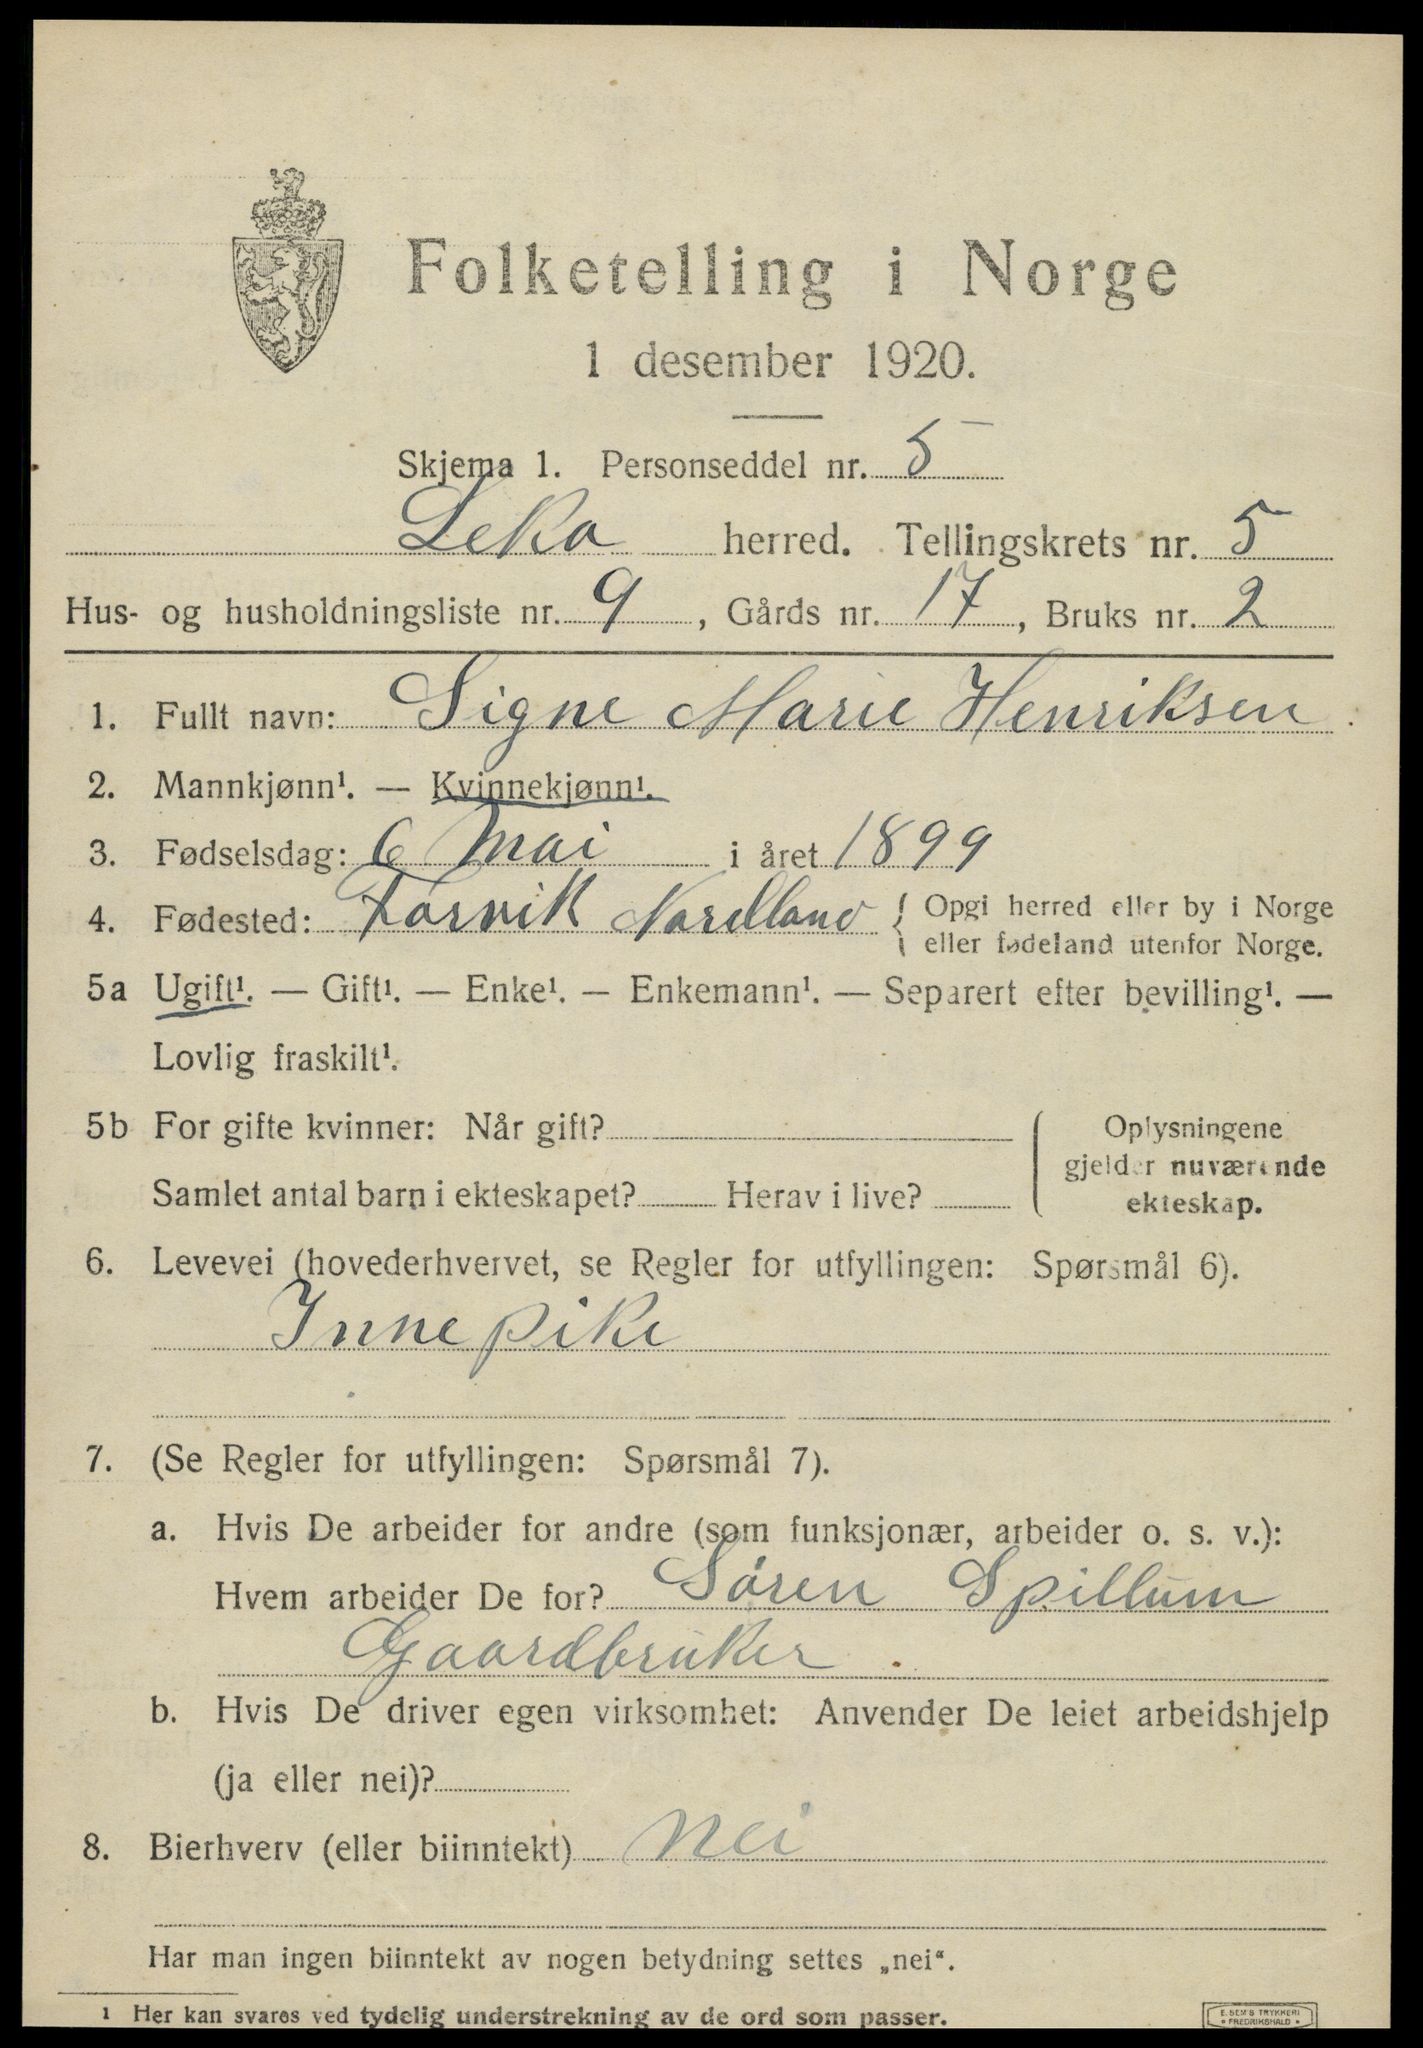 Folketelling i Norge
1 desember 1920.
Skjema 1. Personseddel nr. 5
Leka herred. Tellingskrets nr. 5
Hus- og husholdningsliste nr. 9, Gårds nr. 17, Bruks nr. 2
1. Fullt navn: Signe Marie Henriksen.
2. Mannkjønn¹. — Kvinnekjønn¹.
3. Fødselsdag: 6 Mai i året 1899
4. Fødested: Forvik Nordland { Opgi herred eller by i Norge
eller fødeland utenfor Norge.
5a Ugift¹. — Gift¹. — Enke¹. — Enkemann¹. — Separert efter bevilling¹. —
Lovlig fraskilt¹.
5b For gifte kvinner: Når gift?
Samlet antal barn i ekteskapet? Herav i live?
Oplysningene
gjelder nuværende
ekteskap.
6. Levevei (hovederhvervet, se Regler for utfyllingen: Spørsmål 6).
Inne pike
7. (Se Regler for utfyllingen: Spørsmål 7).
a. Hvis De arbeider for andre (som funksjonær, arbeider o. s. v.):
Hvem arbeider De for? Sören Spillum
Gaardbruker
b. Hvis De driver egen virksomhet: Anvender De leiet arbeidshjelp
(ja eller nei)?
8. Bierhverv (eller biinntekt) nei
Har man ingen biinntekt av nogen betydning settes „nei“.
1 Her kan svares ved tydelig understrekning av de ord som passer.
E. SEM'S TRYKKERI
* FREDRIKSHALD *